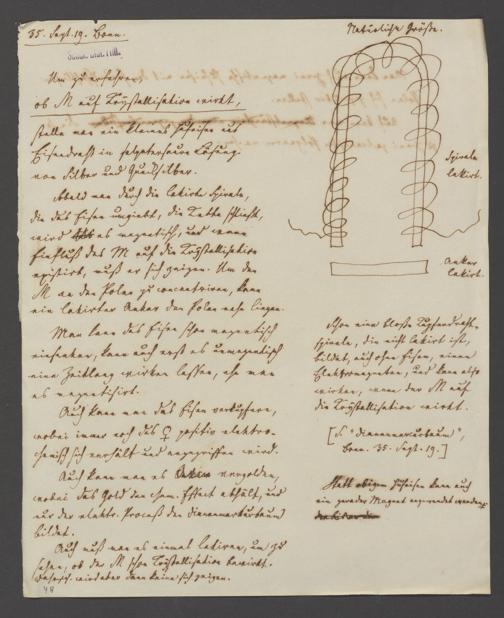 35. Sept. 19. Bonn.
Natürliche Größe.
Um zu erfahren,
ob M auf Krystallisation wirkt,
stelle man ein kleines Hufeisen aus
Eisendraht in salpetersaure Lösung
von Silber und Quecksilber.
Sobald man durch die lakirte Spirale,
die das Eisen umgiebt, die Kette schließt,
wird es magnetisch, und wenn
Einfluß des M auf die Krystallisation
existirt, muß er sich zeigen. Um den
M an den Polen zu concentriren, kann
ein lakirter Anker den Polen nahe liegen.
Man kann das Eisen schon magnetisch
eintauchen, kann auch erst es unmagnetisch
eine Zeitlang wirken lassen, ehe man
es magnetisirt.
Auch kann man das Eisen verkupfern,
wobei immer noch das ♀ positiv elektro-
chemisch sich verhält und angegriffen wird.
Auch kann man es vergolden,
wobei das Gold den chem. Effect abhält, und
nur der elektr. Proceß den Dianenbaum
bildet.
Auch muß man es einmal lakiren, um zu
sehen, ob der M schon Krystallisation bewirkt.
wird aber dann keine sich zeigen.
48
Spirale
lakirt.
Anker
lakirt.
Schon eine bloße Kupferdraht-
spirale, die nicht lakirt ist,
bildet, auch ohne Eisen, einen
Elektromagneten, und kann also
wirken, wenn der M auf
die Krystallisation wirkt.
Bonn. 35. Sept. 19.]
Statt obigem Hufeisen kann auch
ein gerader Magnet angewendet werden.